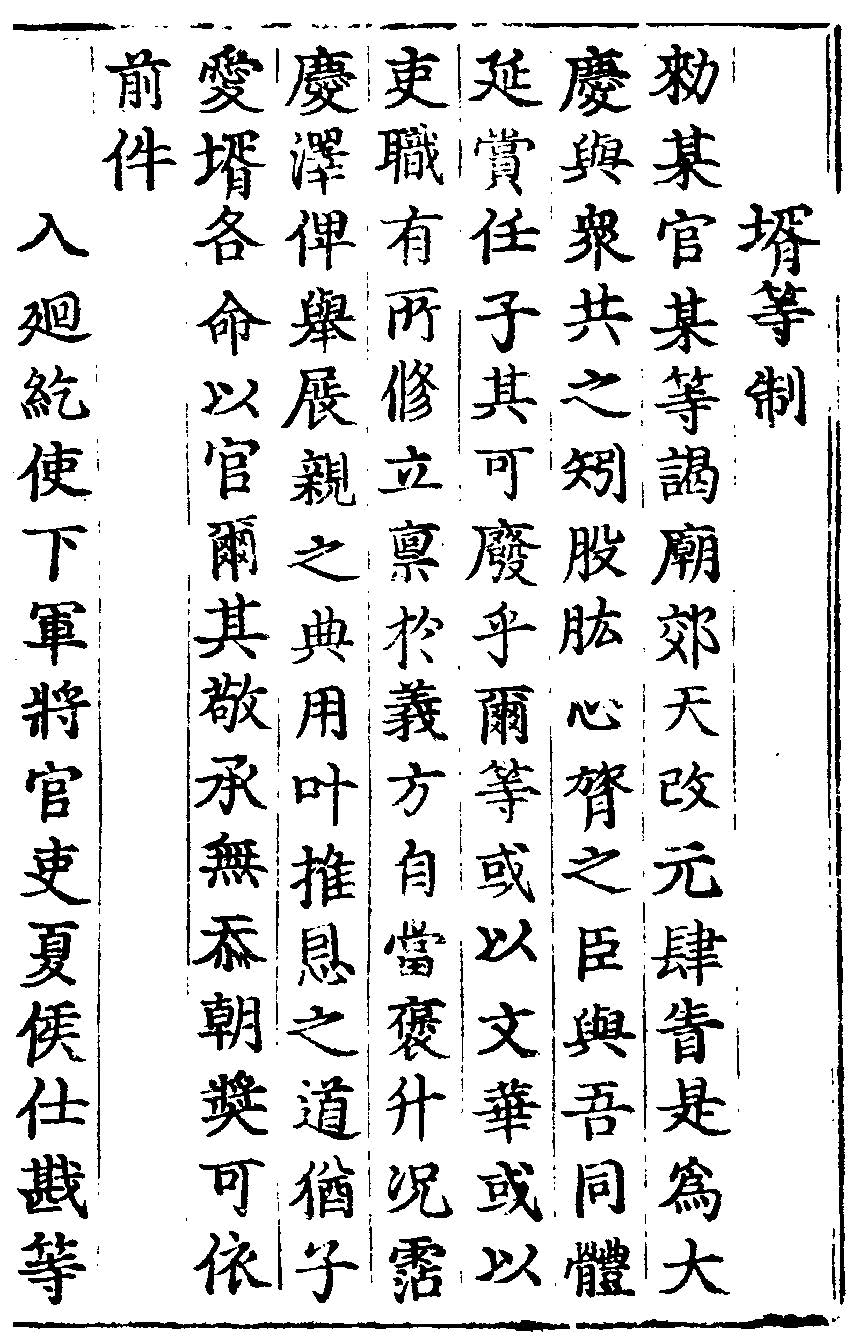 壻等制
勑某官某等謁廟郊天改元肆眚是爲大
慶與衆共之矧股肱心膂之臣與吾同體
延賞任子其可廢乎爾等或以文華或以
吏職有所修立禀於義方自當襃升况霑
慶澤俾舉展親之典用叶推恩之道猶子
愛壻各命以官爾其敬承無忝朝奬可依
前件
入廻紇使下軍將官吏夏侯仕戡等